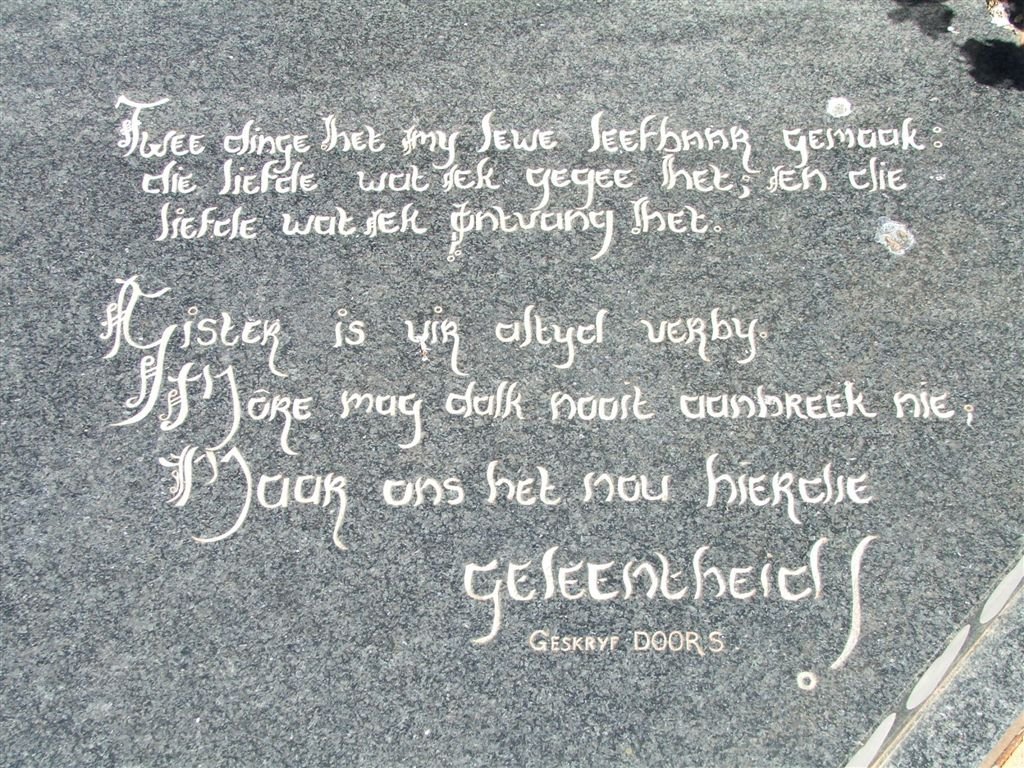 Twee dinge het my lewe leefbaar gemaak:
die liefde wat ek gegee het; en die
liefde wat ek ontvang het.
Gister is vir altyd verby.
Môre mag dalk nooit aanbreek nie;
Maar ons het nou hierdie
geleentheid!
GESKRYF DOORS.